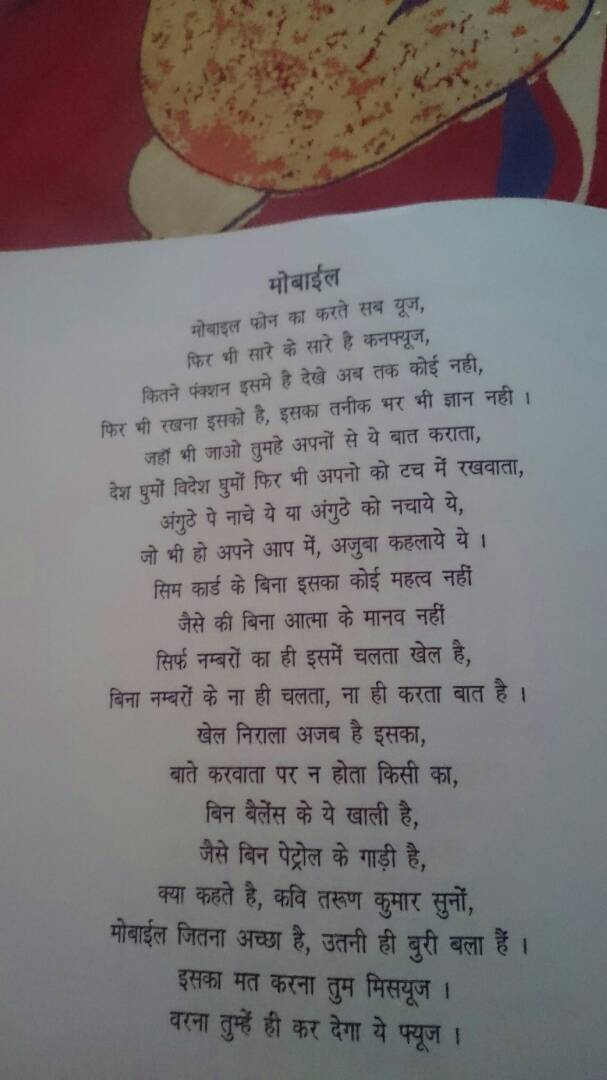 मोबाईल
मोबाइल फोन का करते सब यूज,
फिर भी सारे के सारे है कनफ्यूज,
कितने फंक्शन इसमे है देखे अब तक कोई नही,
फिर भी रखना इसको है, इसका तनीक भर भी ज्ञान नही ।
जहाँ भी जाओ तुमहे अपनों से ये बात कराता,
देश घुमों विदेश घुमों फिर भी अपनो को टच में रखवाता,
अंगुठे पे नाचे ये या अंगुठे को नचाये ये,
जो भी हो अपने आप में, अजुबा कहलाये ये ।
सिम कार्ड के बिना इसका कोई महत्व नहीं
जैसे की बिना आत्मा के मानव नहीं
सिर्फ नम्बरों का ही इसमें चलता खेल है,
बिना नम्बरों के ना ही चलता, ना ही करता बात है ।
खेल निराला अजब है इसका,
बाते करवाता पर न होता किसी का,
बिन बैलेंस के ये खाली है,
जैसे बिन पेट्रोल के गाड़ी है,
क्या कहते है, कवि तरूण कुमार सुनों,
मोबाईल जितना अच्छा है, उतनी ही बुरी बला हैं ।
इसका मत करना तुम मिसयूज ।
वरना तुम्हें ही कर देगा ये फ्यूज ।